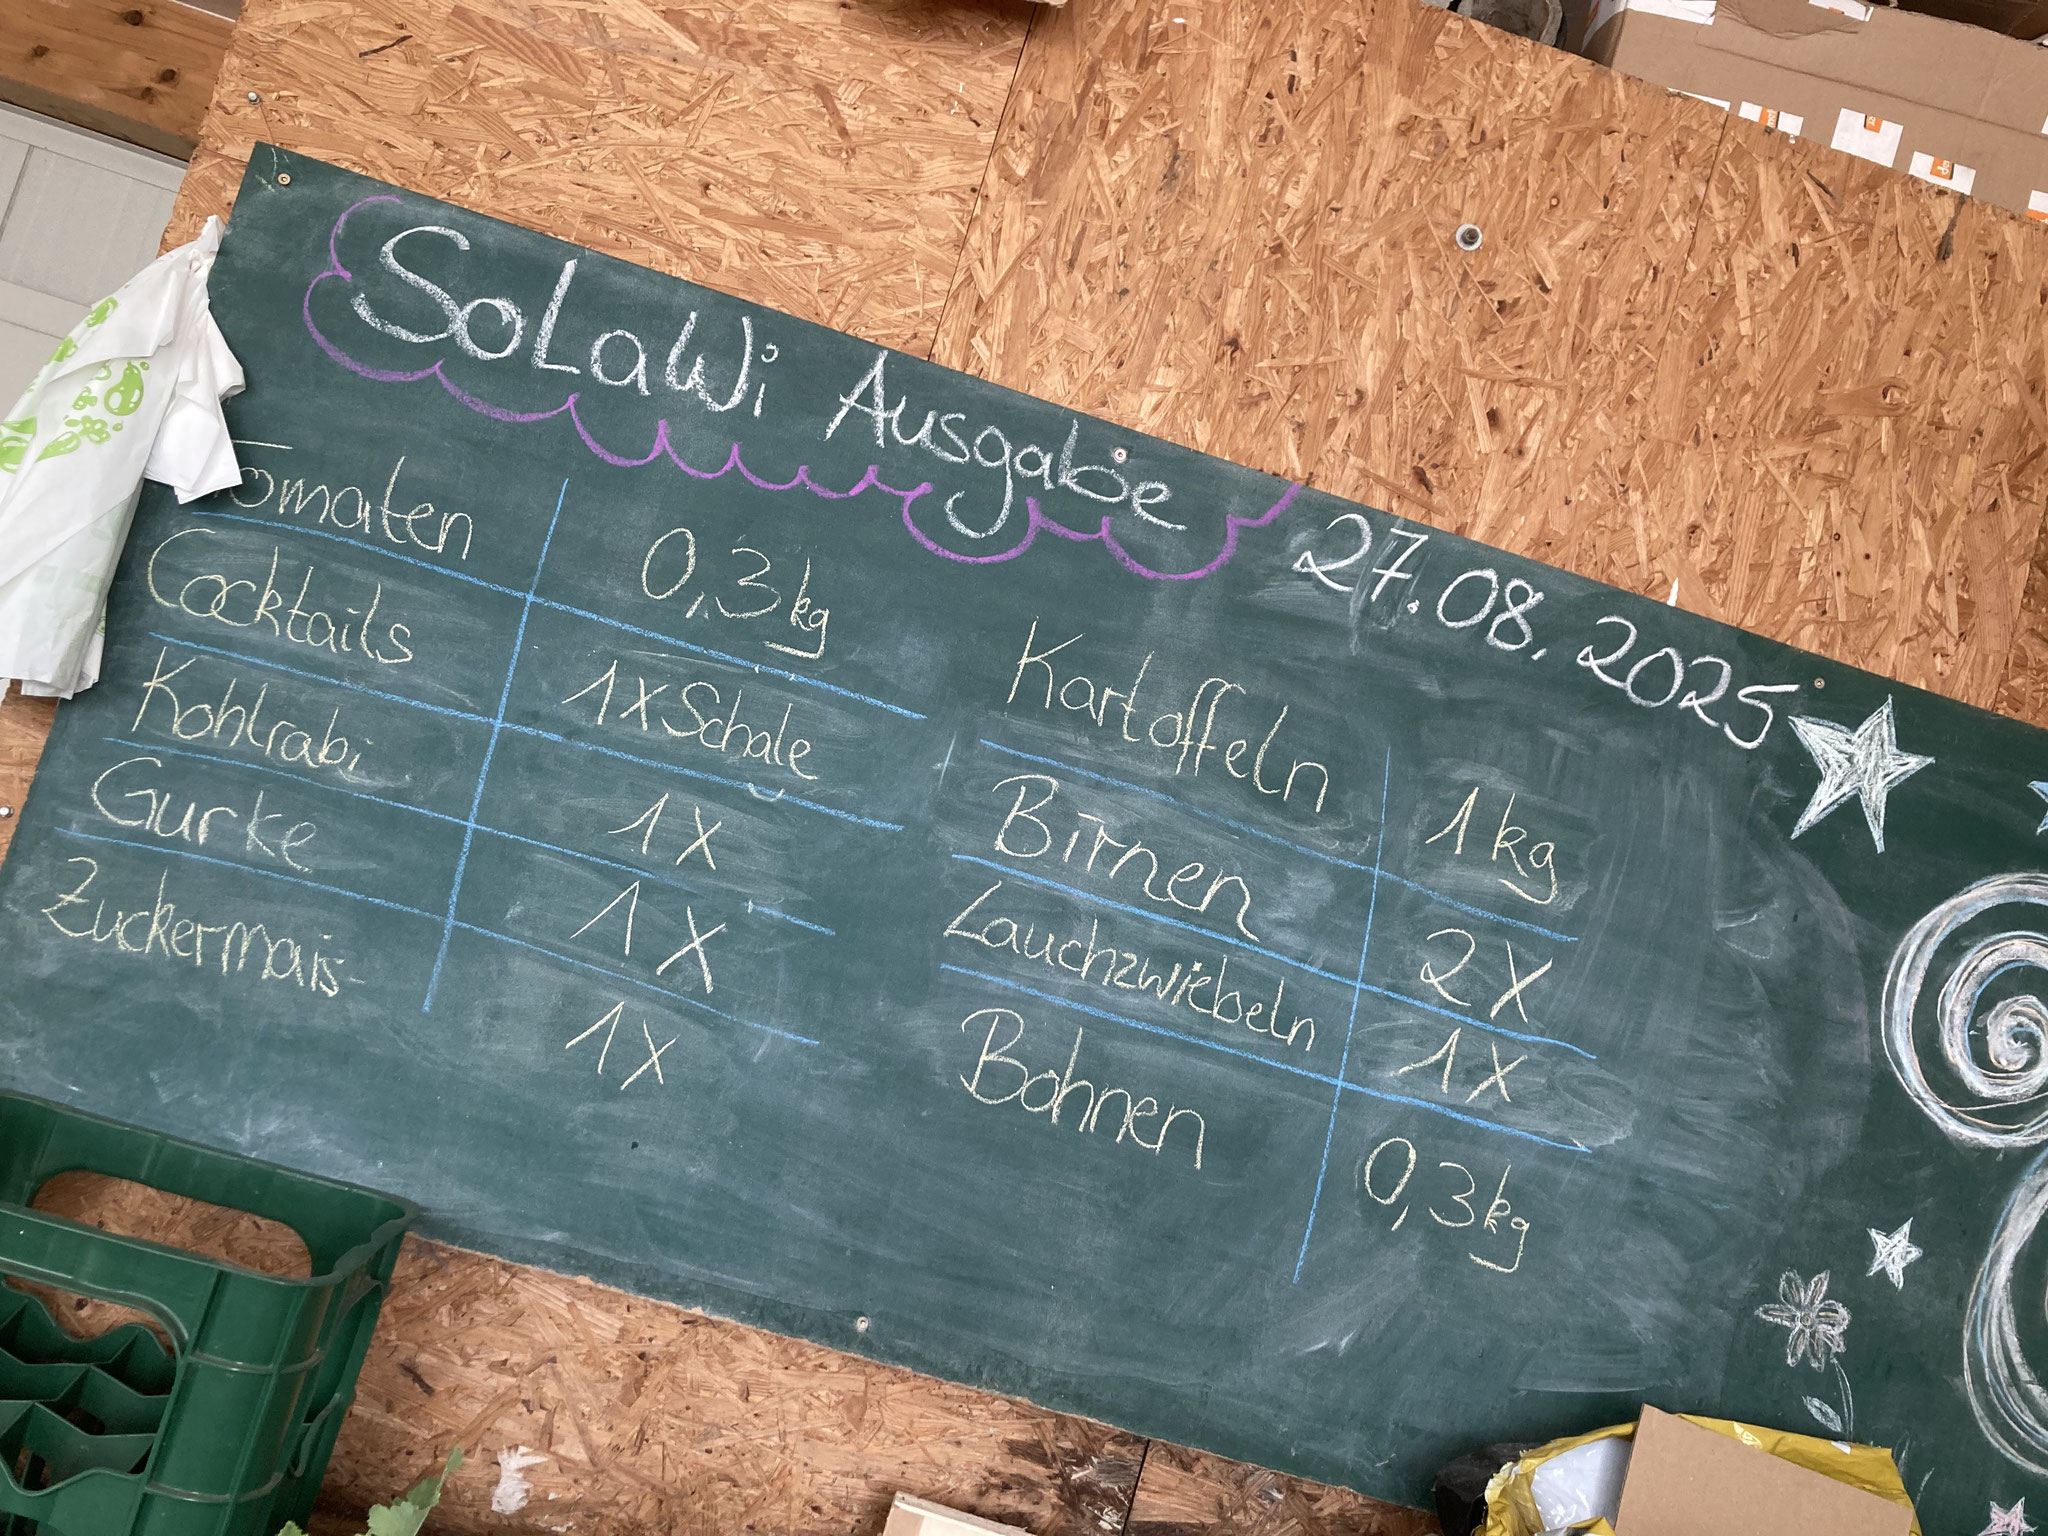 SoLaWi Ausgabe
27.08.2025
Tomaten 0,3 kg
Cocktails 1x Schale
Kohlrabi 1x
Gurke 1x
Zuckermais- 1x
Kartoffeln 1 kg
Birnen 2x
Lauchzwiebeln 1x
Bohnen 0,3 kg